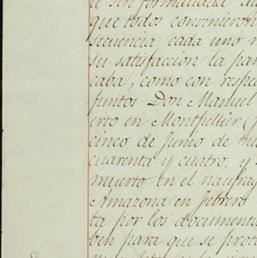 e sin formalidad
que todos convinieron
secuencia cada uno
su satisfaccion la par
caba, como con respe
juntos Don Manuel
erto en Montpellier
cinco de Junio de mil
cuarenta y cuatro, y
muerto en el naufrag
Amazona en febrero
ta por los documento
ben para que se proto